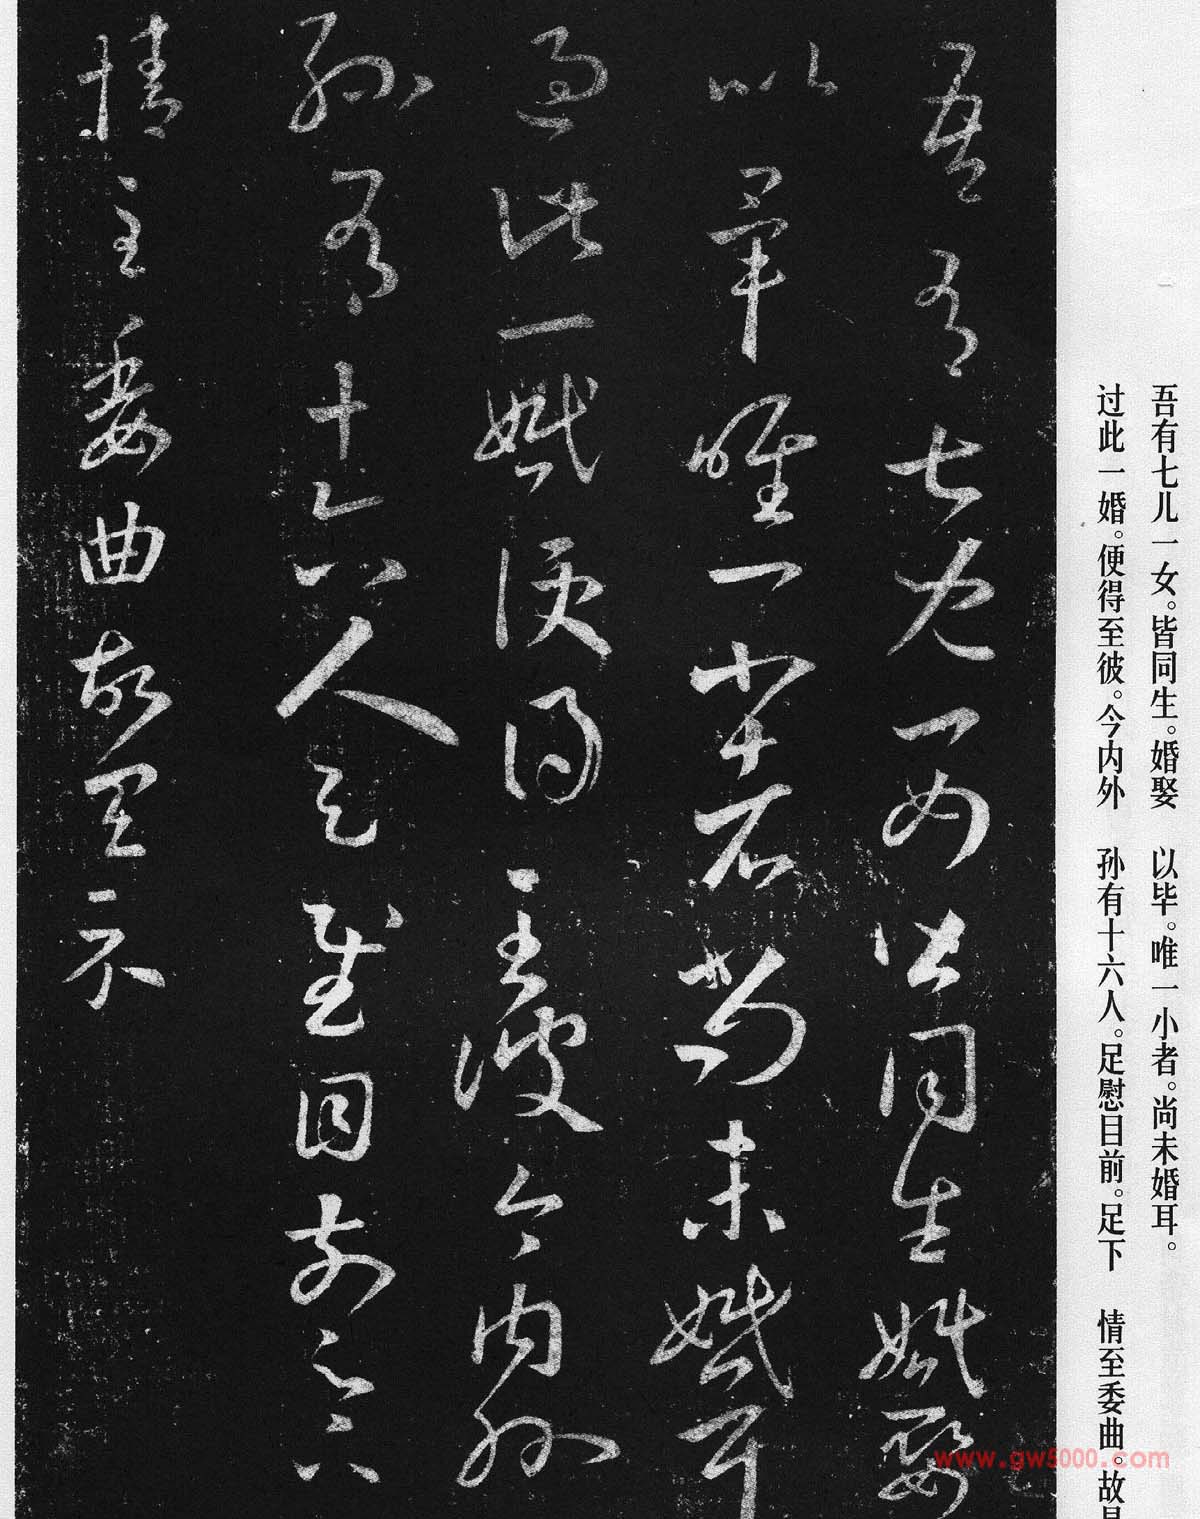 吾有七儿一女。皆同生。婚娶 以毕。唯一小者。尚未婚耳。
过此一婚。便得至彼。今内外 孙有十六人。足慰目前。足下 情至委曲。故
吾有七兒一女皆同生婚娶
以畢唯一小者尚未婚耳
過此一婚便得至彼今内外
孫有十六人足慰目前足下
情至委曲故具示
www.gw5000.com